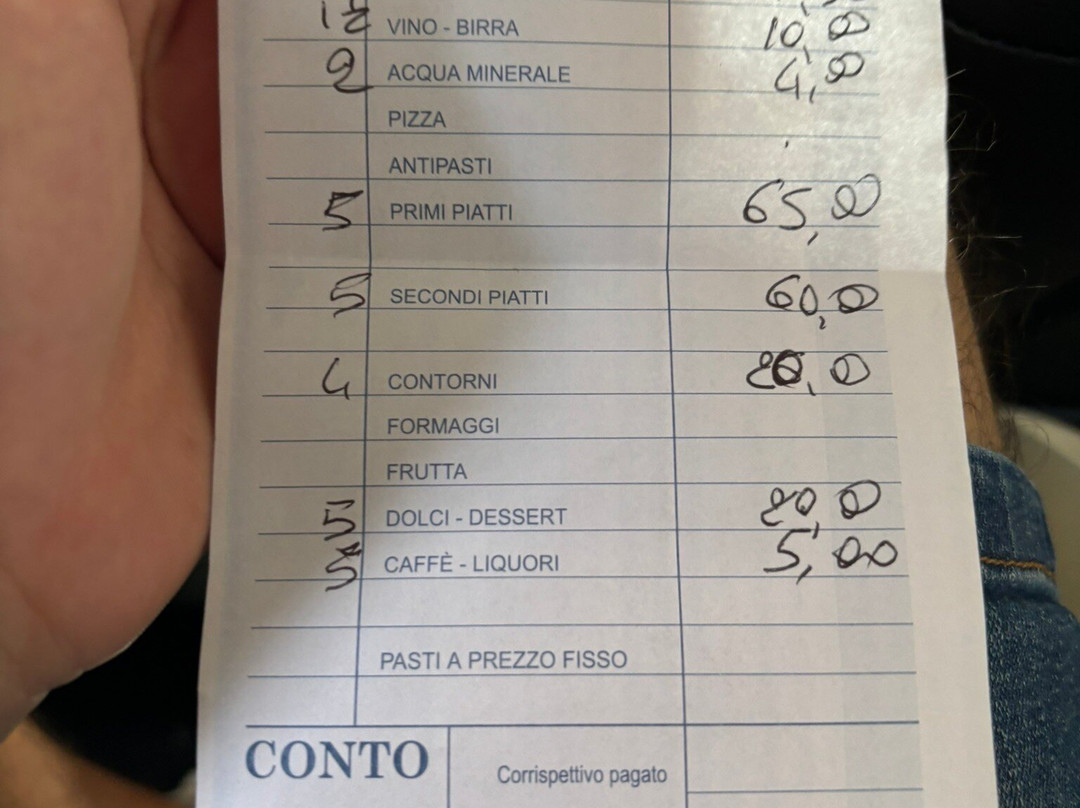 VINO - BIRRA 10,00
2 ACQUA MINERALE 4,00
PIZZA
ANTIPASTI
5 PRIMI PIATTI 65,00
5 SECONDI PIATTI 60,00
4 CONTORNI 20,0
FORMAGGI
FRUTTA
5 DOLCI - DESSERT 20,0
5 CAFFÈ - LIQUORI 5,00
PASTI A PREZZO FISSO
CONTO Corrispettivo pagato